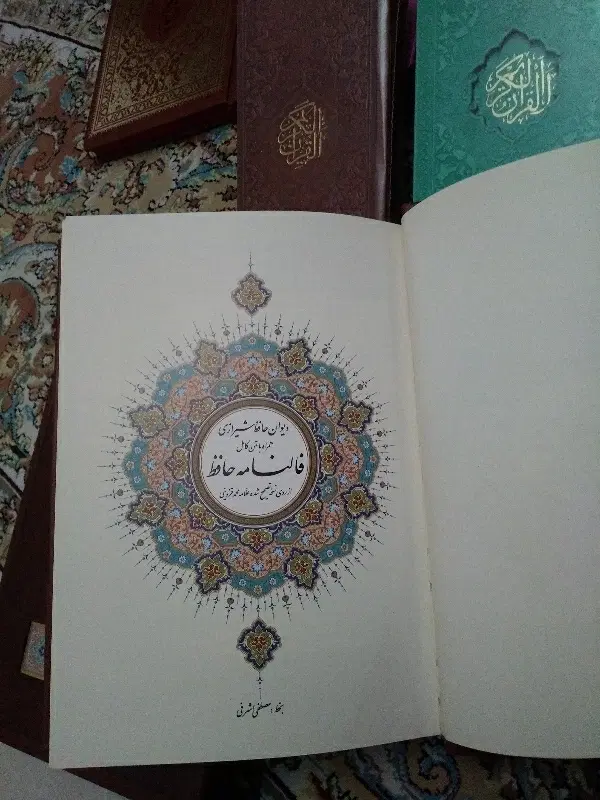 القرآن الكريم
القرآن الكريم
دیوان حافظ شیرازی
همراه با متن کامل
فالنامه حافظ
از روی نسخه تصحیح شده علامه محمد قزوینی
بخط : مصطفی اشرفی